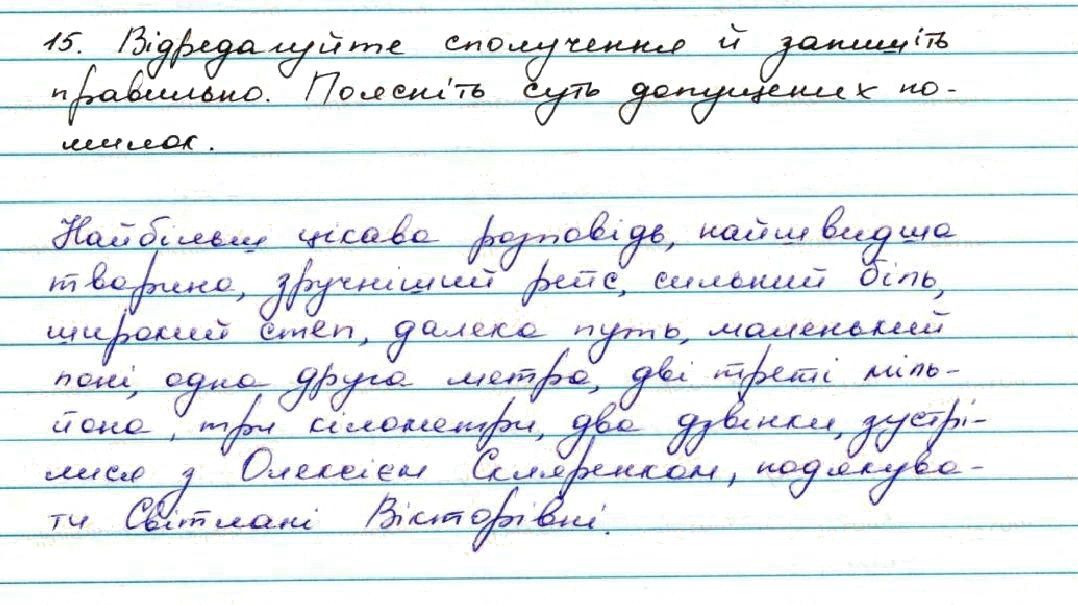 15. Відредагуйте сполучення й запишіть
правильно. Поясніть суть допущених по-
милок.
Найбільш цікава розповідь, найшвидша
тварина, зручніший рейс, сильний біль,
широкий степ, далека путь, маленький
поні, одна друга метра, дві треті міль-
йона, три кілометри, два дзвінки, зустрі-
лися з Олексієм Скляренком, подякува-
ти Світлані Вікторівні.